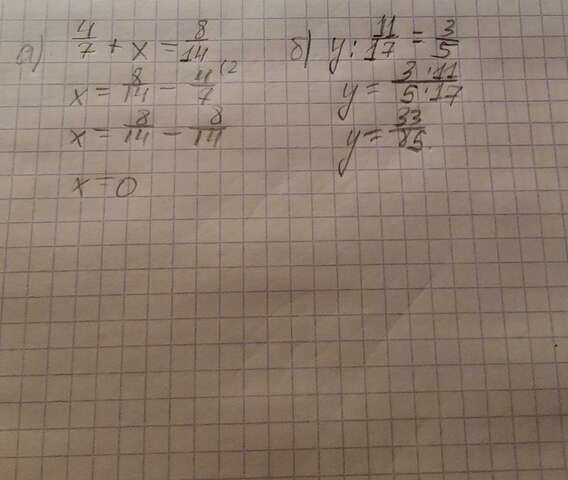 а) 4/7 + x = 8/14
x = 8/14 - 4/7 (2
x = 8/14 - 8/14
x = 0
б) y : 11/17 = 3/5
y = 3·11/5·17
y = 33/85.